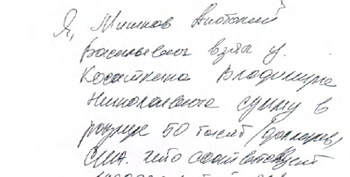 Я, Мишков Анатолий
Васильевич взял у
Косаткина Владимира
Николаевича сумму в
размере 50 тысяч /долларов/
США. что соответствует